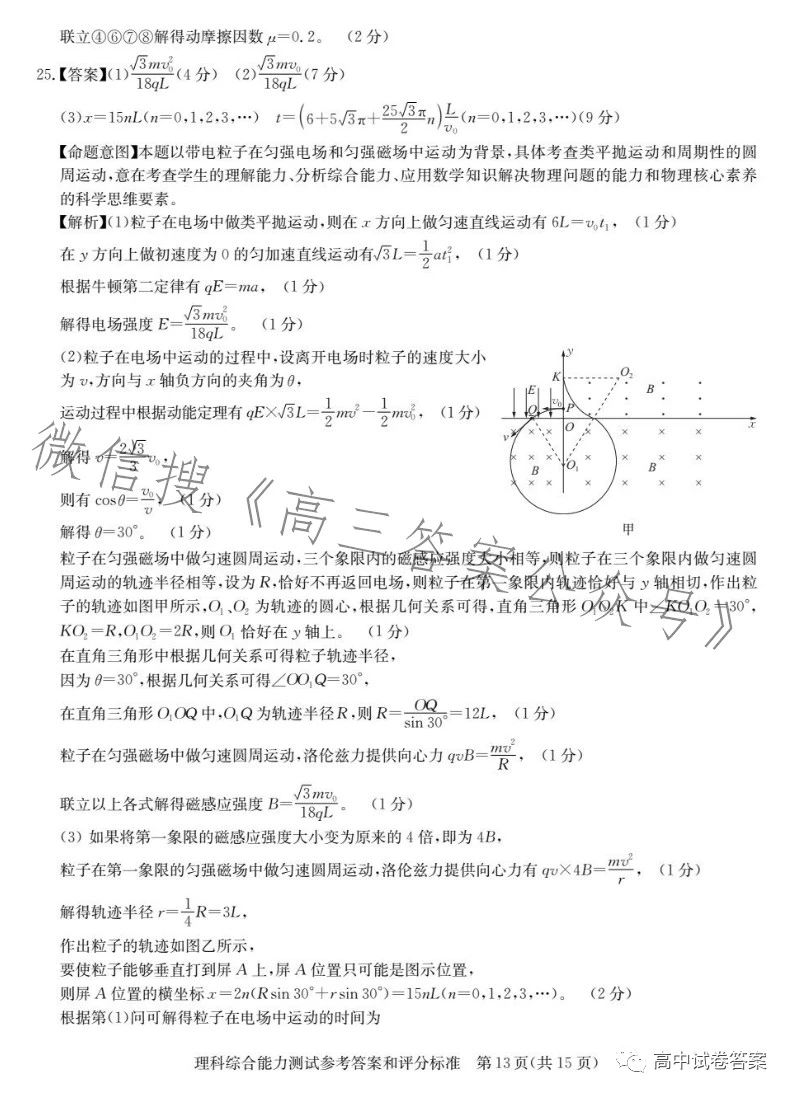 联立④⑥⑦⑧解得动摩擦因数 μ=0.2。 (2 分)
25.【答案】(1) √3mv₀²/18qL (4 分) (2) √3mv₀/18qL (7 分)
(3)x=15nL(n=0,1,2,3,…) t=(6+5√3π+25√3π/2 n)L/v₀(n=0,1,2,3,…)(9 分)
【命题意图】本题以带电粒子在匀强电场和匀强磁场中运动为背景,具体考查类平抛运动和周期性的圆
周运动,意在考查学生的理解能力、分析综合能力、应用数学知识解决物理问题的能力和物理核心素养
的科学思维要素。
【解析】(1)粒子在电场中做类平抛运动,则在 x 方向上做匀速直线运动有 6L=v₀t₁, (1 分)
在 y 方向上做初速度为 0 的匀加速直线运动有√3L=1/2 at₁², (1 分)
根据牛顿第二定律有 qE=ma, (1 分)
解得电场强度 E=√3mv₀²/18qL。 (1 分)
(2)粒子在电场中运动的过程中,设离开电场时粒子的速度大小
为 v,方向与 x 轴负方向的夹角为 θ,
运动过程中根据动能定理有 qE×√3L=1/2 mv²−1/2 mv₀², (1 分)
解得 v=2√3/3 v₀,
则有 cosθ=v₀/v, (1 分)
解得 θ=30°。 (1 分)
y
K
O₂
E
B
v₀
P
Q
O
x
v
B
O₁
B
甲
粒子在匀强磁场中做匀速圆周运动,三个象限内的磁感应强度大小相等,则粒子在三个象限内做匀速圆
周运动的轨迹半径相等,设为 R,恰好不再返回电场,则粒子在第一象限内轨迹恰好与 y 轴相切,作出粒
子的轨迹如图甲所示,O₁、O₂ 为轨迹的圆心,根据几何关系可得,直角三角形 O₁O₂K 中∠KO₁O₂=30°,
KO₂=R,O₁O₂=2R,则 O₁ 恰好在 y 轴上。 (1 分)
在直角三角形中根据几何关系可得粒子轨迹半径,
因为 θ=30°,根据几何关系可得∠OO₁Q=30°,
在直角三角形 O₁OQ 中,O₁Q 为轨迹半径 R,则 R=OQ/sin 30°=12L, (1 分)
粒子在匀强磁场中做匀速圆周运动,洛伦兹力提供向心力 qvB=mv²/R, (1 分)
联立以上各式解得磁感应强度 B=√3mv₀/18qL。 (1 分)
(3) 如果将第一象限的磁感应强度大小变为原来的 4 倍,即为 4B,
粒子在第一象限的匀强磁场中做匀速圆周运动,洛伦兹力提供向心力有 qv×4B=mv²/r, (1 分)
解得轨迹半径 r=1/4 R=3L,
作出粒子的轨迹如图乙所示,
要使粒子能够垂直打到屏 A 上,屏 A 位置只可能是图示位置,
则屏 A 位置的横坐标 x=2n(Rsin 30°+rsin 30°)=15nL(n=0,1,2,3,…)。 (2 分)
根据第(1)问可解得粒子在电场中运动的时间为
微信搜《高三答案公众号》
理科综合能力测试参考答案和评分标准 第 13 页(共 15 页)
高中试卷答案